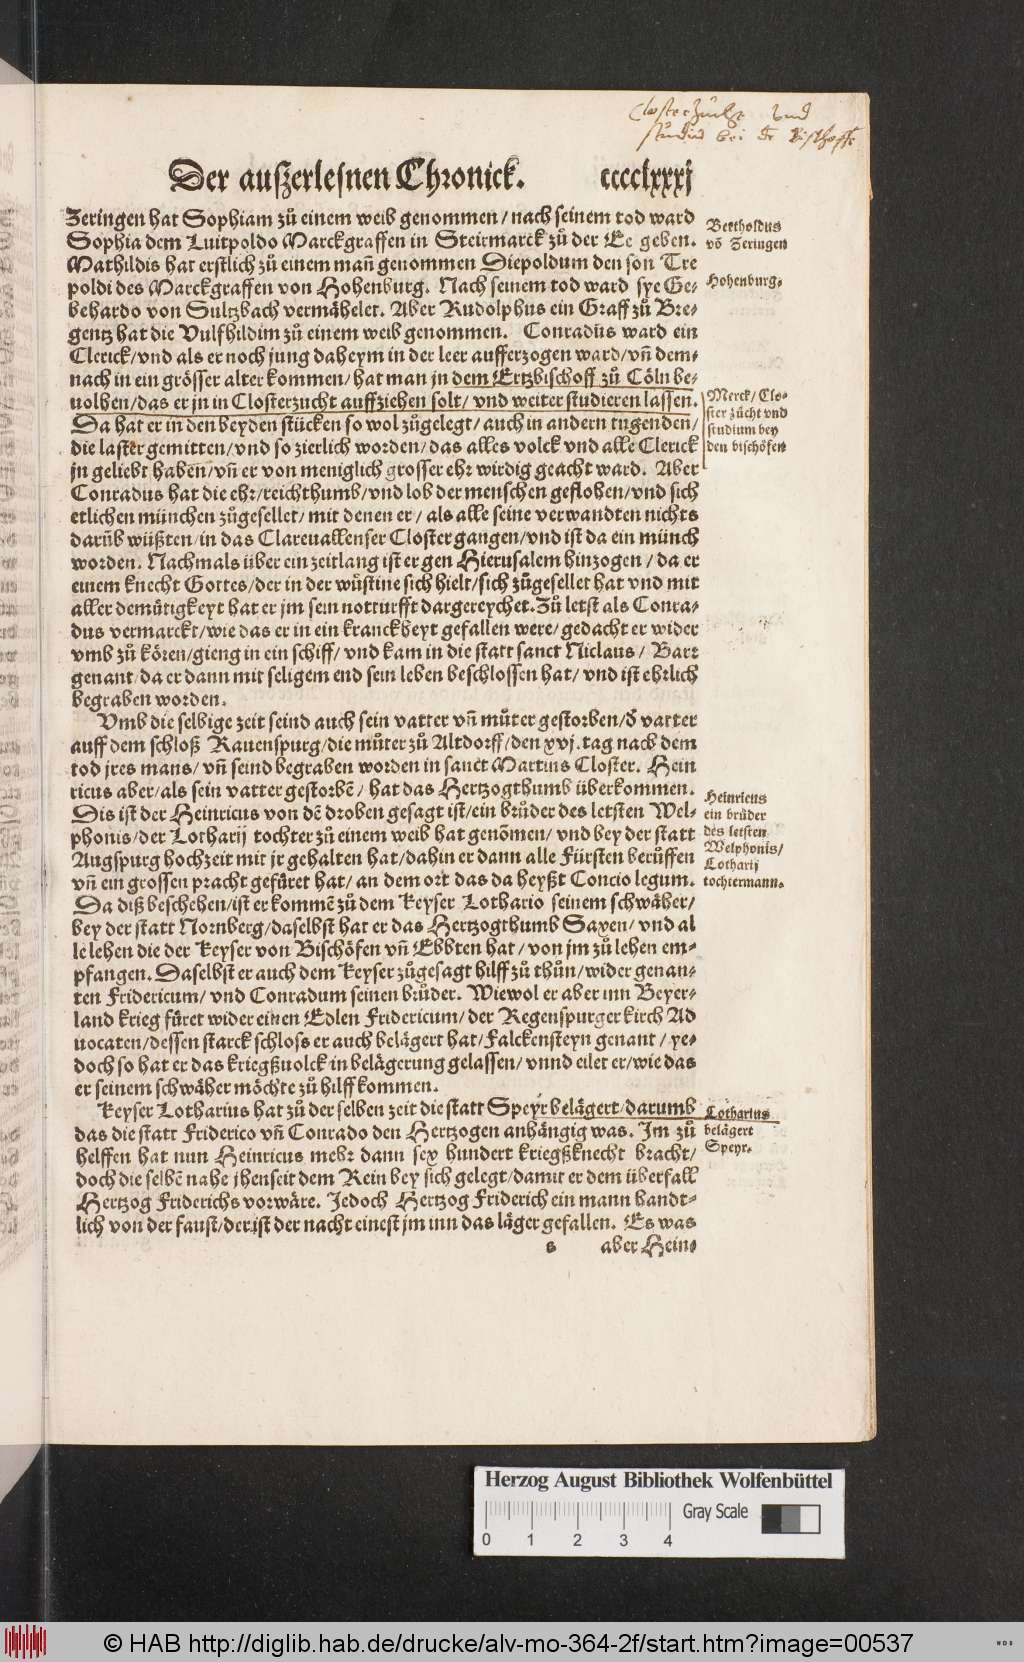 Closterzucht vnd
studiū bei dē Bischoffē
Der auszerlesnen Chronick. cccclxxxj
Zeringen hat Sophiam zů einem weib genommen/ nach seinem tod ward
Sophia dem Luitpoldo Marckgraffen in Steirmarck zů der Ee geben.
Mathildis hat erstlich zů einem mañ genommen Diepoldum den son Tre
poldi des Marckgraffen von Hohenburg. Nach seinem tod ward sye Ge-
behardo von Sultzbach vermähelet. Aber Rudolphus ein Graff zů Bre-
gentz hat die Vulfhildim zů einem weib genommen. Conradus ward ein
Clerick/vnd als er noch jung daheym in der leer aufferzogen ward/vñ dem-
nach in ein grösser alter kommen/ hat man jn dem Ertzbischoff zů Cöln be-
uolhen/das er jn in Closterzucht auffziehen solt/ vnd weiter studieren lassen.
Da hat er in den beyden stücken so wol zůgelegt/ auch in andern tugenden/
die laster gemitten/vnd so zierlich worden/das alles volck vnd alle Clerick
jn geliebt haben/vñ er von meniglich grosser ehr wirdig geacht ward. Aber
Conradus hat die ehr/reichthumb/vnd lob der menschen geflohen/vnd sich
etlichen münchen zůgesellet/ mit denen er/ als alle seine verwandten nichts
darůb wüßten/in das Clareuallenser Closter gangen/vnd ist da ein münch
worden. Nachmals über ein zeitlang ist er gen Hierusalem hinzogen/ da er
einem knecht Gottes/der in der wůstine sich hielt/sich zůgesellet hat vnd mit
aller demůtigkeyt hat er jm sein notturfft dargereychet. Zů letst als Conra-
dus vermarckt/wie das er in ein kranckheyt gefallen were/gedacht er wider
vmb zů kören/gieng in ein schiff/ vnd kam in die statt sanct Niclaus/ Barr
genant/da er dann mit seligem end sein leben beschlossen hat/ vnd ist ehrlich
begraben worden.
Vmb die selbige zeit seind auch sein vatter vñ můter gestorben/d̄ vatter
auff dem schloß Rauenspurg/die můter zů Altdorff/den xvj.tag nach dem
tod jres mans/ vñ seind begraben worden in sanct Martins Closter. Hein
ricus aber/als sein vatter gestorbē/ hat das Hertzogthumb überkommen.
Dis ist der Heinricus von dē droben gesagt ist/ein brůder des letsten Wel-
phonis/der Lotharij tochter zů einem weib hat genōmen/ vnd bey der statt
Augspurg hochzeit mit jr gehalten hat/dahin er dann alle Fürsten berůffen
vñ ein grossen pracht gefüret hat/ an dem ort das da heyßt Concio legum.
Da diß beschehen/ist er kommē zů dem Keyser Lothario seinem schwäher/
bey der statt Nornberg/daselbst hat er das Hertzogthumb Saxen/ vnd al
le lehen die der Keyser von Bischöfen vñ Ebbten hat/ von jm zů lehen em-
pfangen. Daselbst er auch dem Keyser zůgesagt hilff zů thůn/wider genan-
ten Fridericum/ vnd Conradum seinen brůder. Wiewol er aber inn Beyer-
land krieg füret wider einen Edlen Fridericum/ der Regenspurger kirch Ad
uocaten/dessen starck schloss er auch belägert hat/Falckensteyn genant/ ye-
doch so hat er das kriegßuolck in belägerung gelassen/ vnnd eilet er/wie das
er seinem schwäher möchte zů hilff kommen.
Keyser Lotharius hat zů der selben zeit die statt Speyr belägert/darumb
das die statt Friderico vñ Conrado den Hertzogen anhängig was. Jm zů
helffen hat nun Heinricus mehr dann sex hundert kriegßknecht bracht/
doch die selbē nahe jhenseit dem Rein bey sich gelegt/damit er dem überfall
Hertzog Friderichs vorwäre. Jedoch Hertzog Friderich ein mann handt-
lich von der faust/der ist der nacht einest jm inn das läger gefallen. Es was
s aber Hein-
Bertholdus
vō Zeringen
Hohenburg.
Merck/ Clo-
ster zücht vnd
studium bey
den bischöfen
Heinricus
ein brůder
des letsten
Welphonis/
Lotharij
tochtermann.
Lotharius
belägert
Speyr.
Herzog August Bibliothek Wolfenbüttel
Gray Scale
0 1 2 3 4
© HAB http://diglib.hab.de/drucke/alv-mo-364-2f/start.htm?image=00537